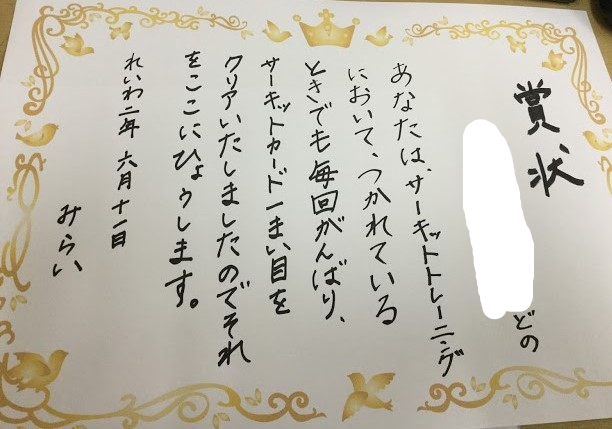 賞状
どの
あなたは、サーキットトレーニング
において、つかれている
ときでも毎回がんばり、
サーキットカード一まい目を
クリアいたしましたのでそれ
をここにひょうします。
れいわ二年 六月十一日
みらい